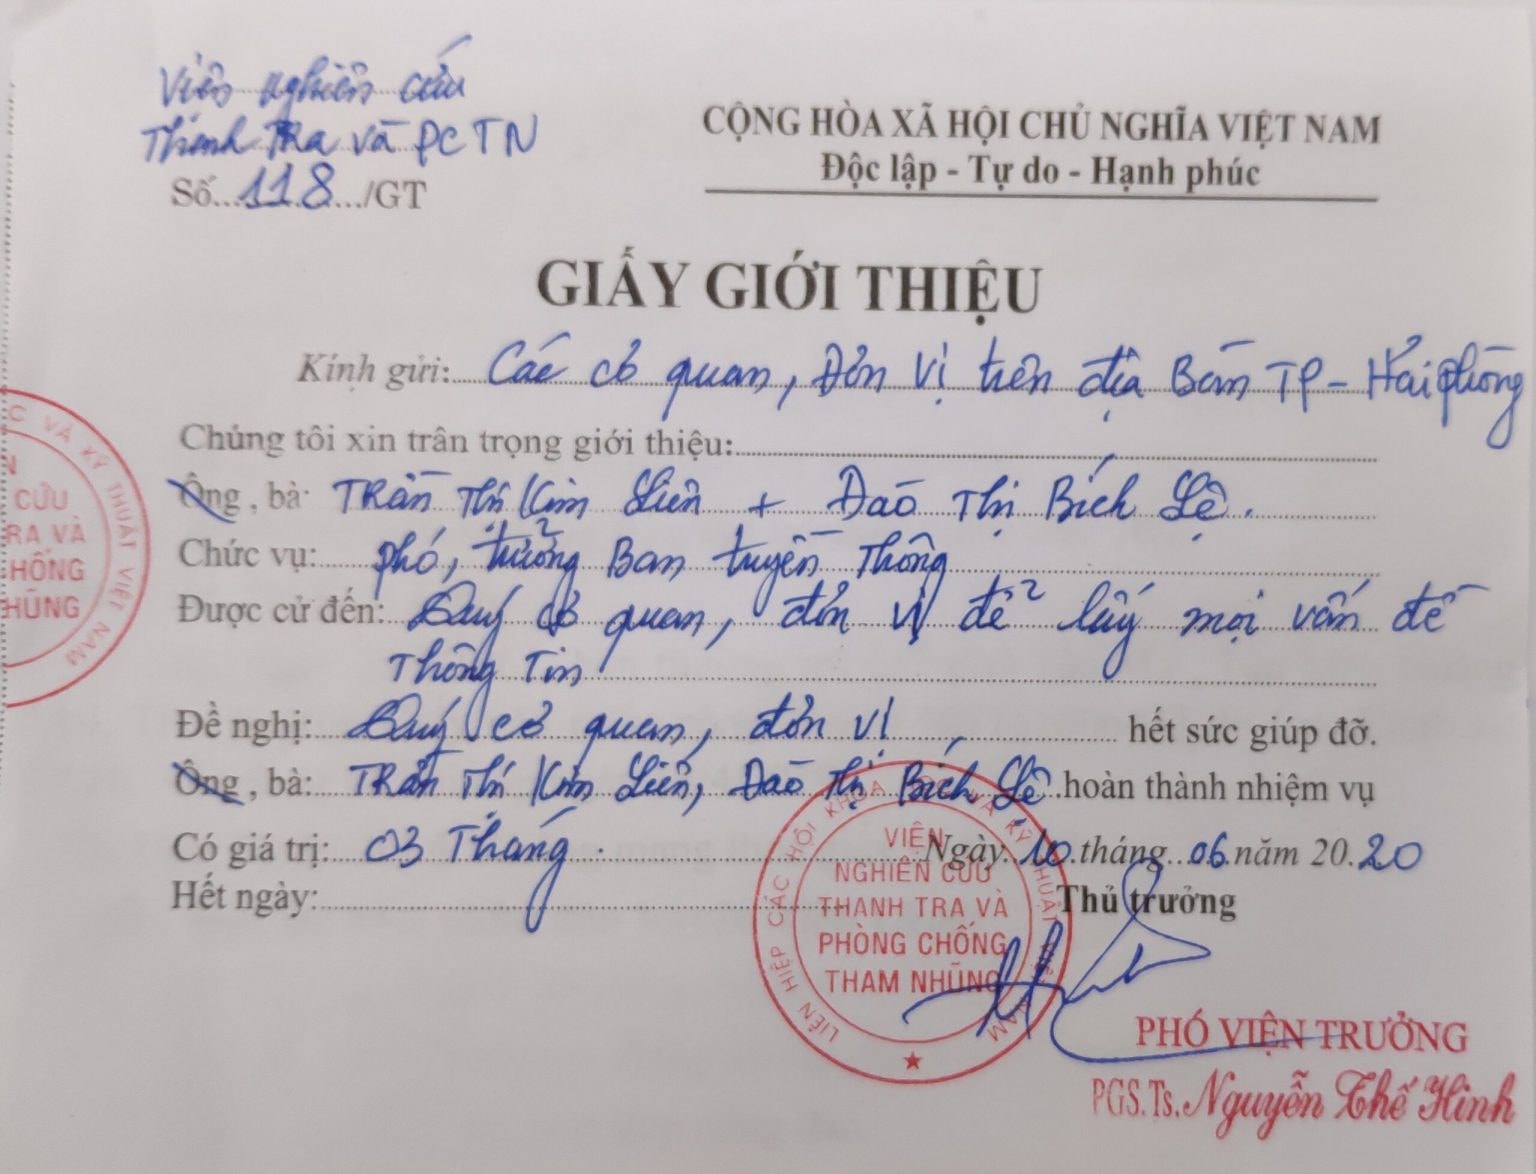 Viện nghiên cứu
Thanh Tra và PCTN
Số...118.../GT
CỘNG HÒA XÃ HỘI CHỦ NGHĨA VIỆT NAM
Độc lập - Tự do - Hạnh phúc
GIẤY GIỚI THIỆU
Kính gửi: Các cơ quan, Đơn vị trên địa Bàn TP - Hải phòng
Chúng tôi xin trân trọng giới thiệu:
Ông, bà: Trần Thị Kim Liên + Đào Thị Bích Lệ.
Chức vụ: phó, trưởng Ban tuyền Thông
Được cử đến: Quý cơ quan, đơn vị để lấy mọi vấn đề
Thông Tin
Đề nghị: Quý cơ quan, đơn vị hết sức giúp đỡ.
Ông, bà: Trần Thị Kim Liên, Đào Thị Bích Lệ hoàn thành nhiệm vụ
Có giá trị: 03 Tháng.
Ngày 10 tháng 06 năm 2020
Hết ngày:
Thủ trưởng
LIÊN HIỆP CÁC HỘI KHOA HỌC VÀ KỸ THUẬT VIỆT NAM
VIỆN
NGHIÊN CỨU
THANH TRA VÀ
PHÒNG CHỐNG
THAM NHŨNG
PHÓ VIỆN TRƯỞNG
PGS.Ts. Nguyễn Thế Hinh
C VÀ KỸ THUẬT VIỆT NAM
N
CỨU
RA VÀ
HỐNG
HŨNG